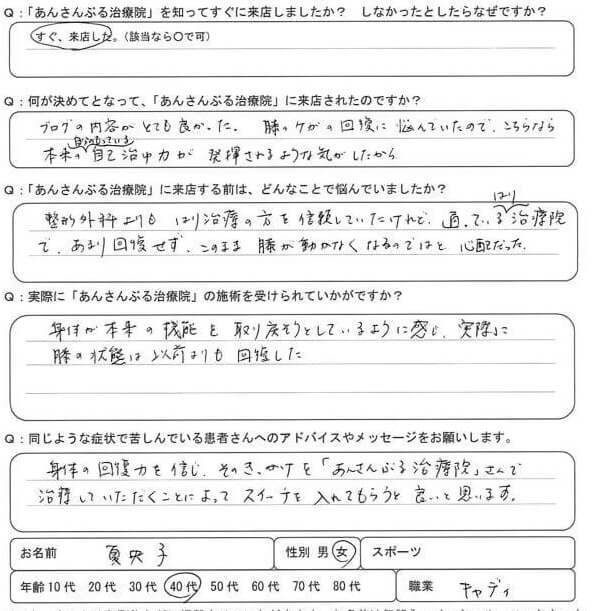 Q：「あんさんぶる治療院」を知ってすぐに来店しましたか？ しなかったとしたらなぜですか？
すぐ、来店した。（該当なら〇で可）
Q：何が決めてとなって、「あんさんぶる治療院」に来店されたのですか？
ブログの内容がとても良かった。膝のケガの回復に悩んでいたので、こちらなら
本来の自分のもっている自己治ゆ力が発揮されるような気がしたから
Q：「あんさんぶる治療院」に来店する前は、どんなことで悩んでいましたか？
整形外科よりもはり治療の方を信頼していたけれど、通っているはり治療院
で、あまり回復せず、このまま膝が動かなくなるのではと心配だった。
Q：実際に「あんさんぶる治療院」の施術を受けられていかがですか？
身体が本来の機能を取り戻そうとしているように感じ、実際に
膝の状態は以前よりも回復した
Q：同じような症状で苦しんでいる患者さんへのアドバイスやメッセージをお願いします。
身体の回復力を信じ、そのきっかけを「あんさんぶる治療院」さんで
治療していただくことによってスイッチを入れてもらうと良いと思います。
お名前 夏央子 性別 男 女 スポーツ
年齢 10代 20代 30代 40代 50代 60代 70代 80代 職業 キャディ